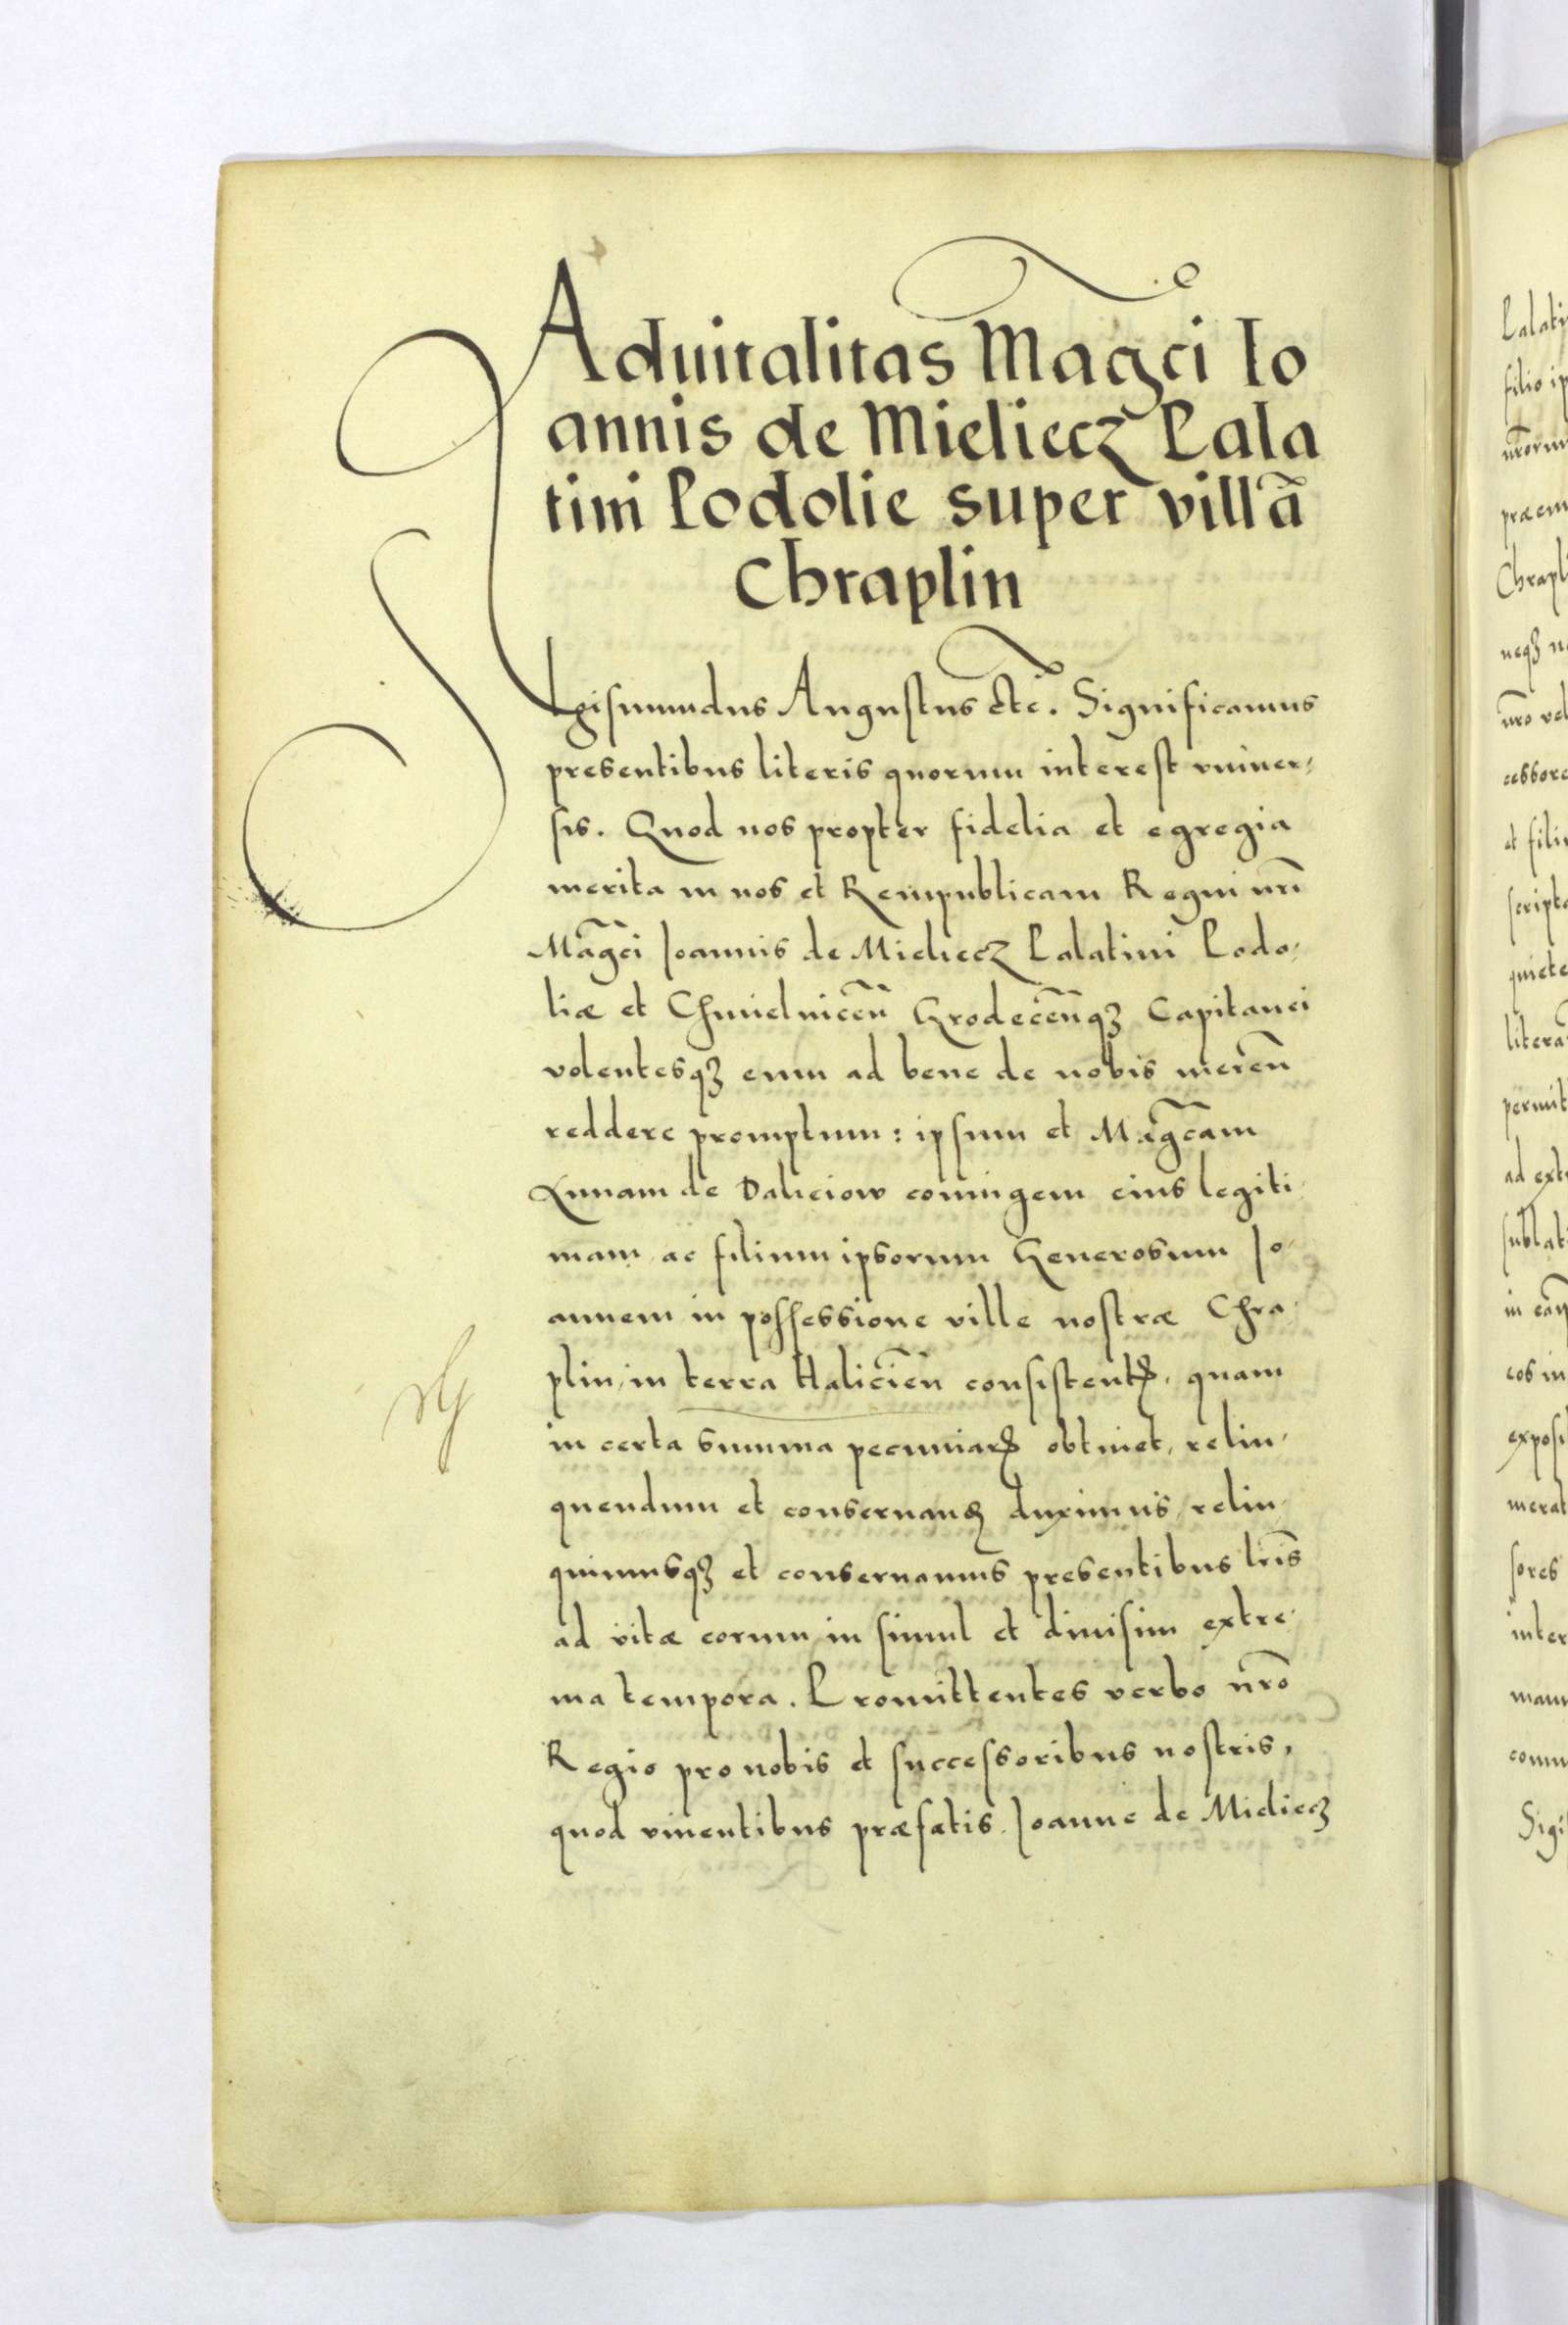 Aduitalitas Magci Io
annis de Mieliecz Pala
tini Podolie super villā
Chraplin
Sigismundus Augustus etc̄. Significamus
presentibus literis quorum interest vniuer,
sis. Quod nos propter fidelia et egregia
merita in nos et Rempublicam Regni nr̄i
Mag̃ci Joannis de Mieliecz Palatini Podo,
liæ et Chmielnicen̄ Grodecen̄qʒ Capitanei
volentesqʒ eum ad bene de nobis meren̄
reddere promptum: ipsum et Mag̃cam
Annam de Daliciow coniugem eius legiti,
mam ac filium ipsorum Generosum Jo,
annem in possessione ville nostræ Chra,
plin, in terra Halicien̄ consistentꝭ, quam
in certa summa pecuniarꝭ obtinet, relin,
quendum et conseruandꝭ duximus, relin,
quimusqʒ et conseruamus presentibus lr̄is
ad vitæ eorum in simul et diuisim extre,
ma tempora. Promittentes verbo nr̄o
Regio pro nobis et successoribus nostris,
quod viuentibus præfatis Joanne de Mieliecz